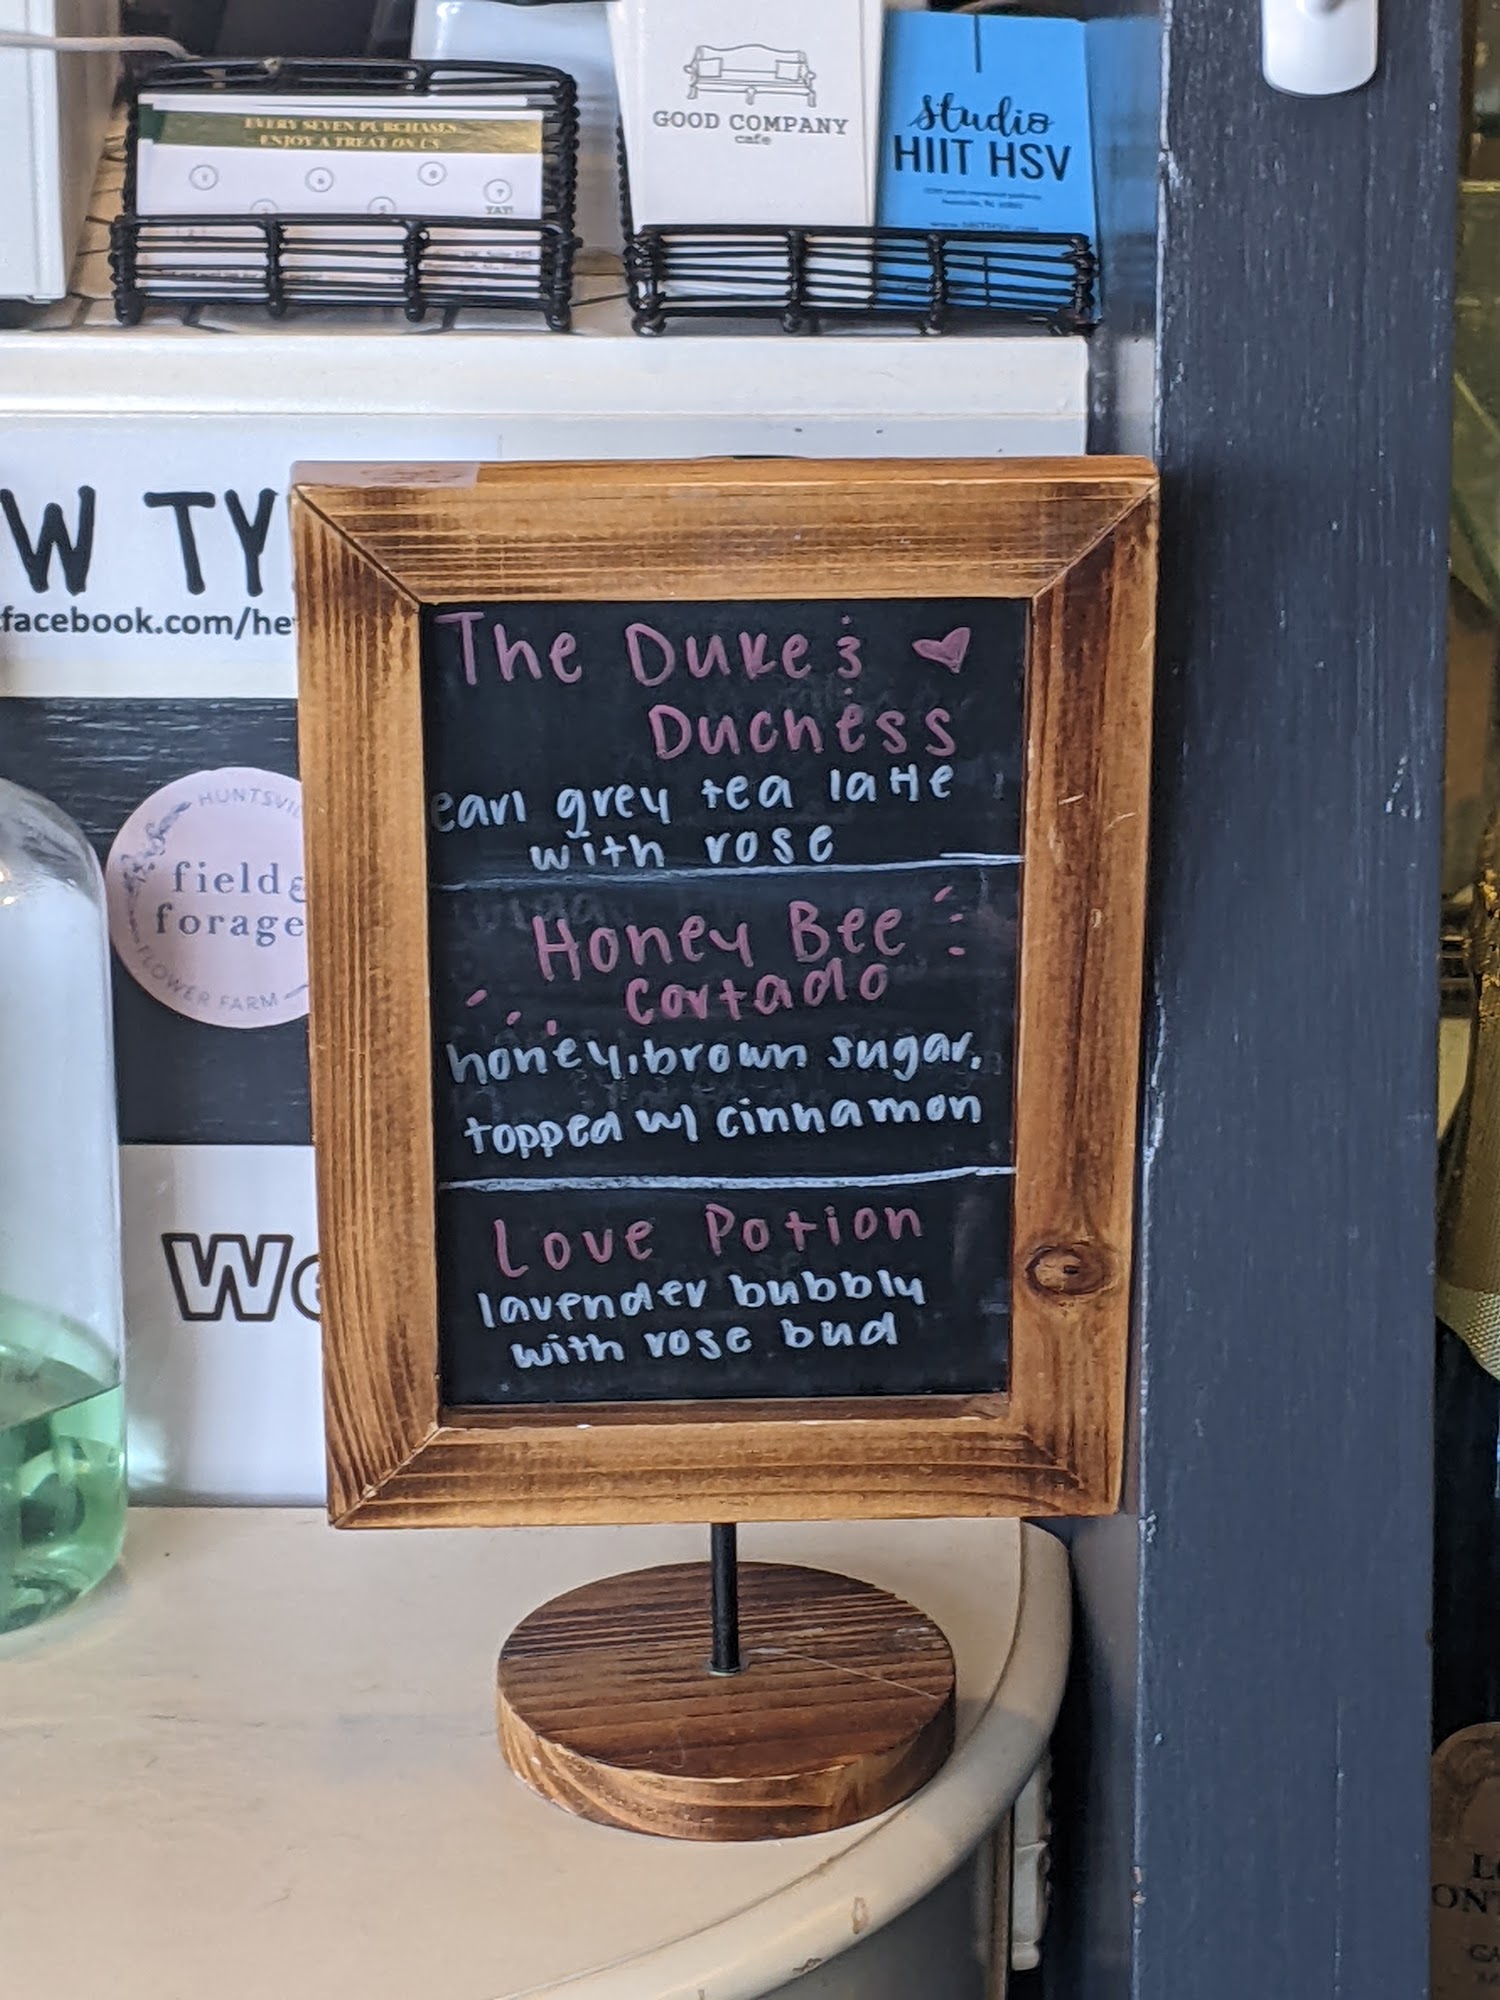 EVERY SEVEN PURCHASES
ENJOY A TREAT ON US
YAY!
GOOD COMPANY
cafe
studio
HIIT HSV
W TY
facebook.com/he
HUNTSVIL
field &
forage
FLOWER FARM
We
The Duke &
Duchess
earl grey tea latte
with rose
Honey Bee
Cortado
honey, brown sugar,
topped w/ cinnamon
Love Potion
lavender bubbly
with rose bud